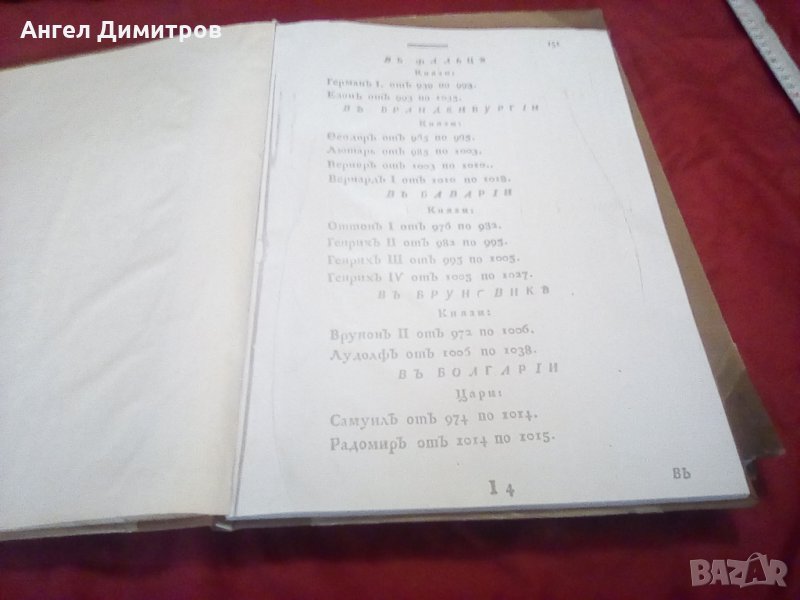 Ангел Димитров
151
ВЪ ФАЛЬЦѢ
Князи:
Германъ I. отъ 939 по 993.
Езонъ отъ 993 по 1035.
ВЪ БРАНДЕНБУРГІИ
Князи:
Ѳеодоръ отъ 965 по 985.
Лютарь отъ 985 по 1003.
Вернеръ отъ 1003 по 1010.
Бернардъ I отъ 1010 по 1018.
ВЪ БАВАРІИ
Князи:
Оттонъ I отъ 976 по 982.
Генрихъ II отъ 982 по 995.
Генрихъ III отъ 995 по 1005.
Генрихъ IV отъ 1005 по 1027.
ВЪ БРУНСВИКѢ
Князи:
Брунонъ II отъ 972 по 1006.
Лудолфъ отъ 1006 по 1038.
ВЪ БОЛГАРІИ
Цари:
Самуилъ отъ 974 по 1014.
Радомиръ отъ 1014 по 1015.
I 4
ВЪ
BAZAR